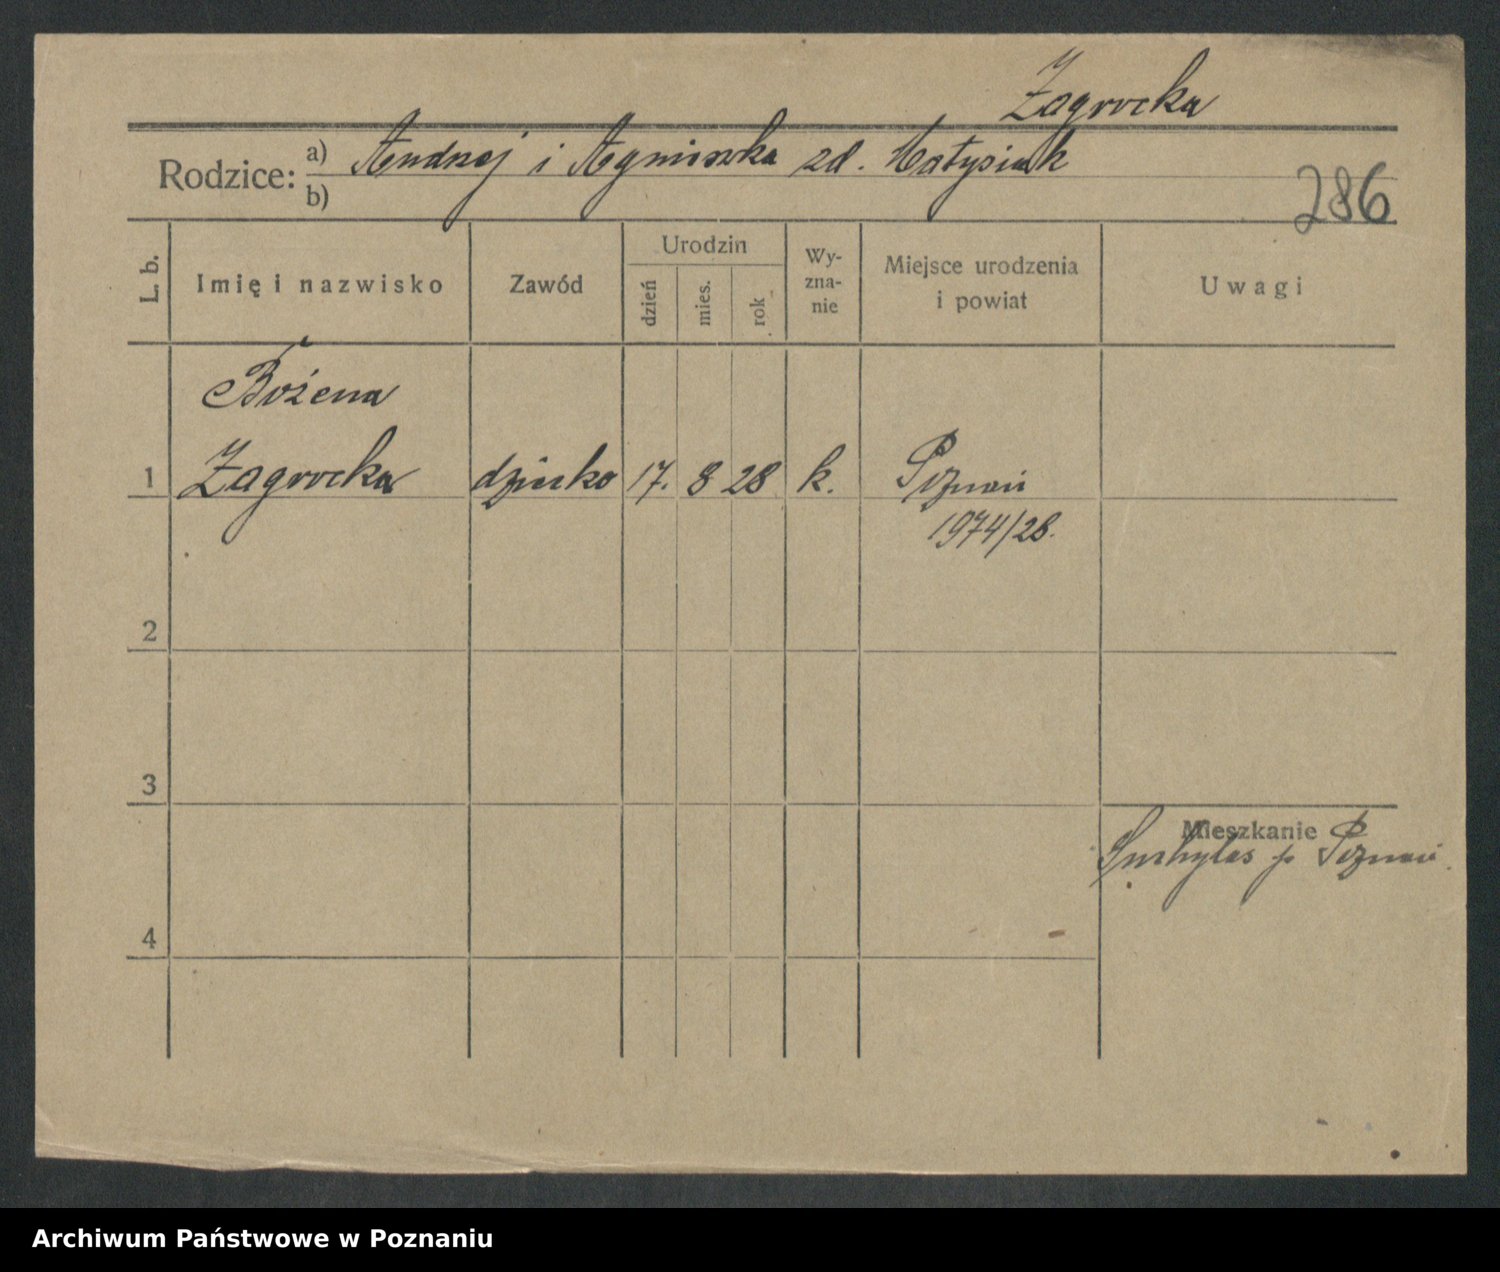 Zagrocka
Rodzice: a) Andrzej i Agnieszka zd. Matysiak
b)
286
L. b. Imię i nazwisko Zawód Urodzin dzień mies. rok Wyznanie Miejsce urodzenia i powiat Uwagi
Bożena
1 Zagrocka dziecko 17. 8 28 k. Poznań
1974/28.
2
3
Mieszkanie
Suchylas p. Poznań.
4
Archiwum Państwowe w Poznaniu